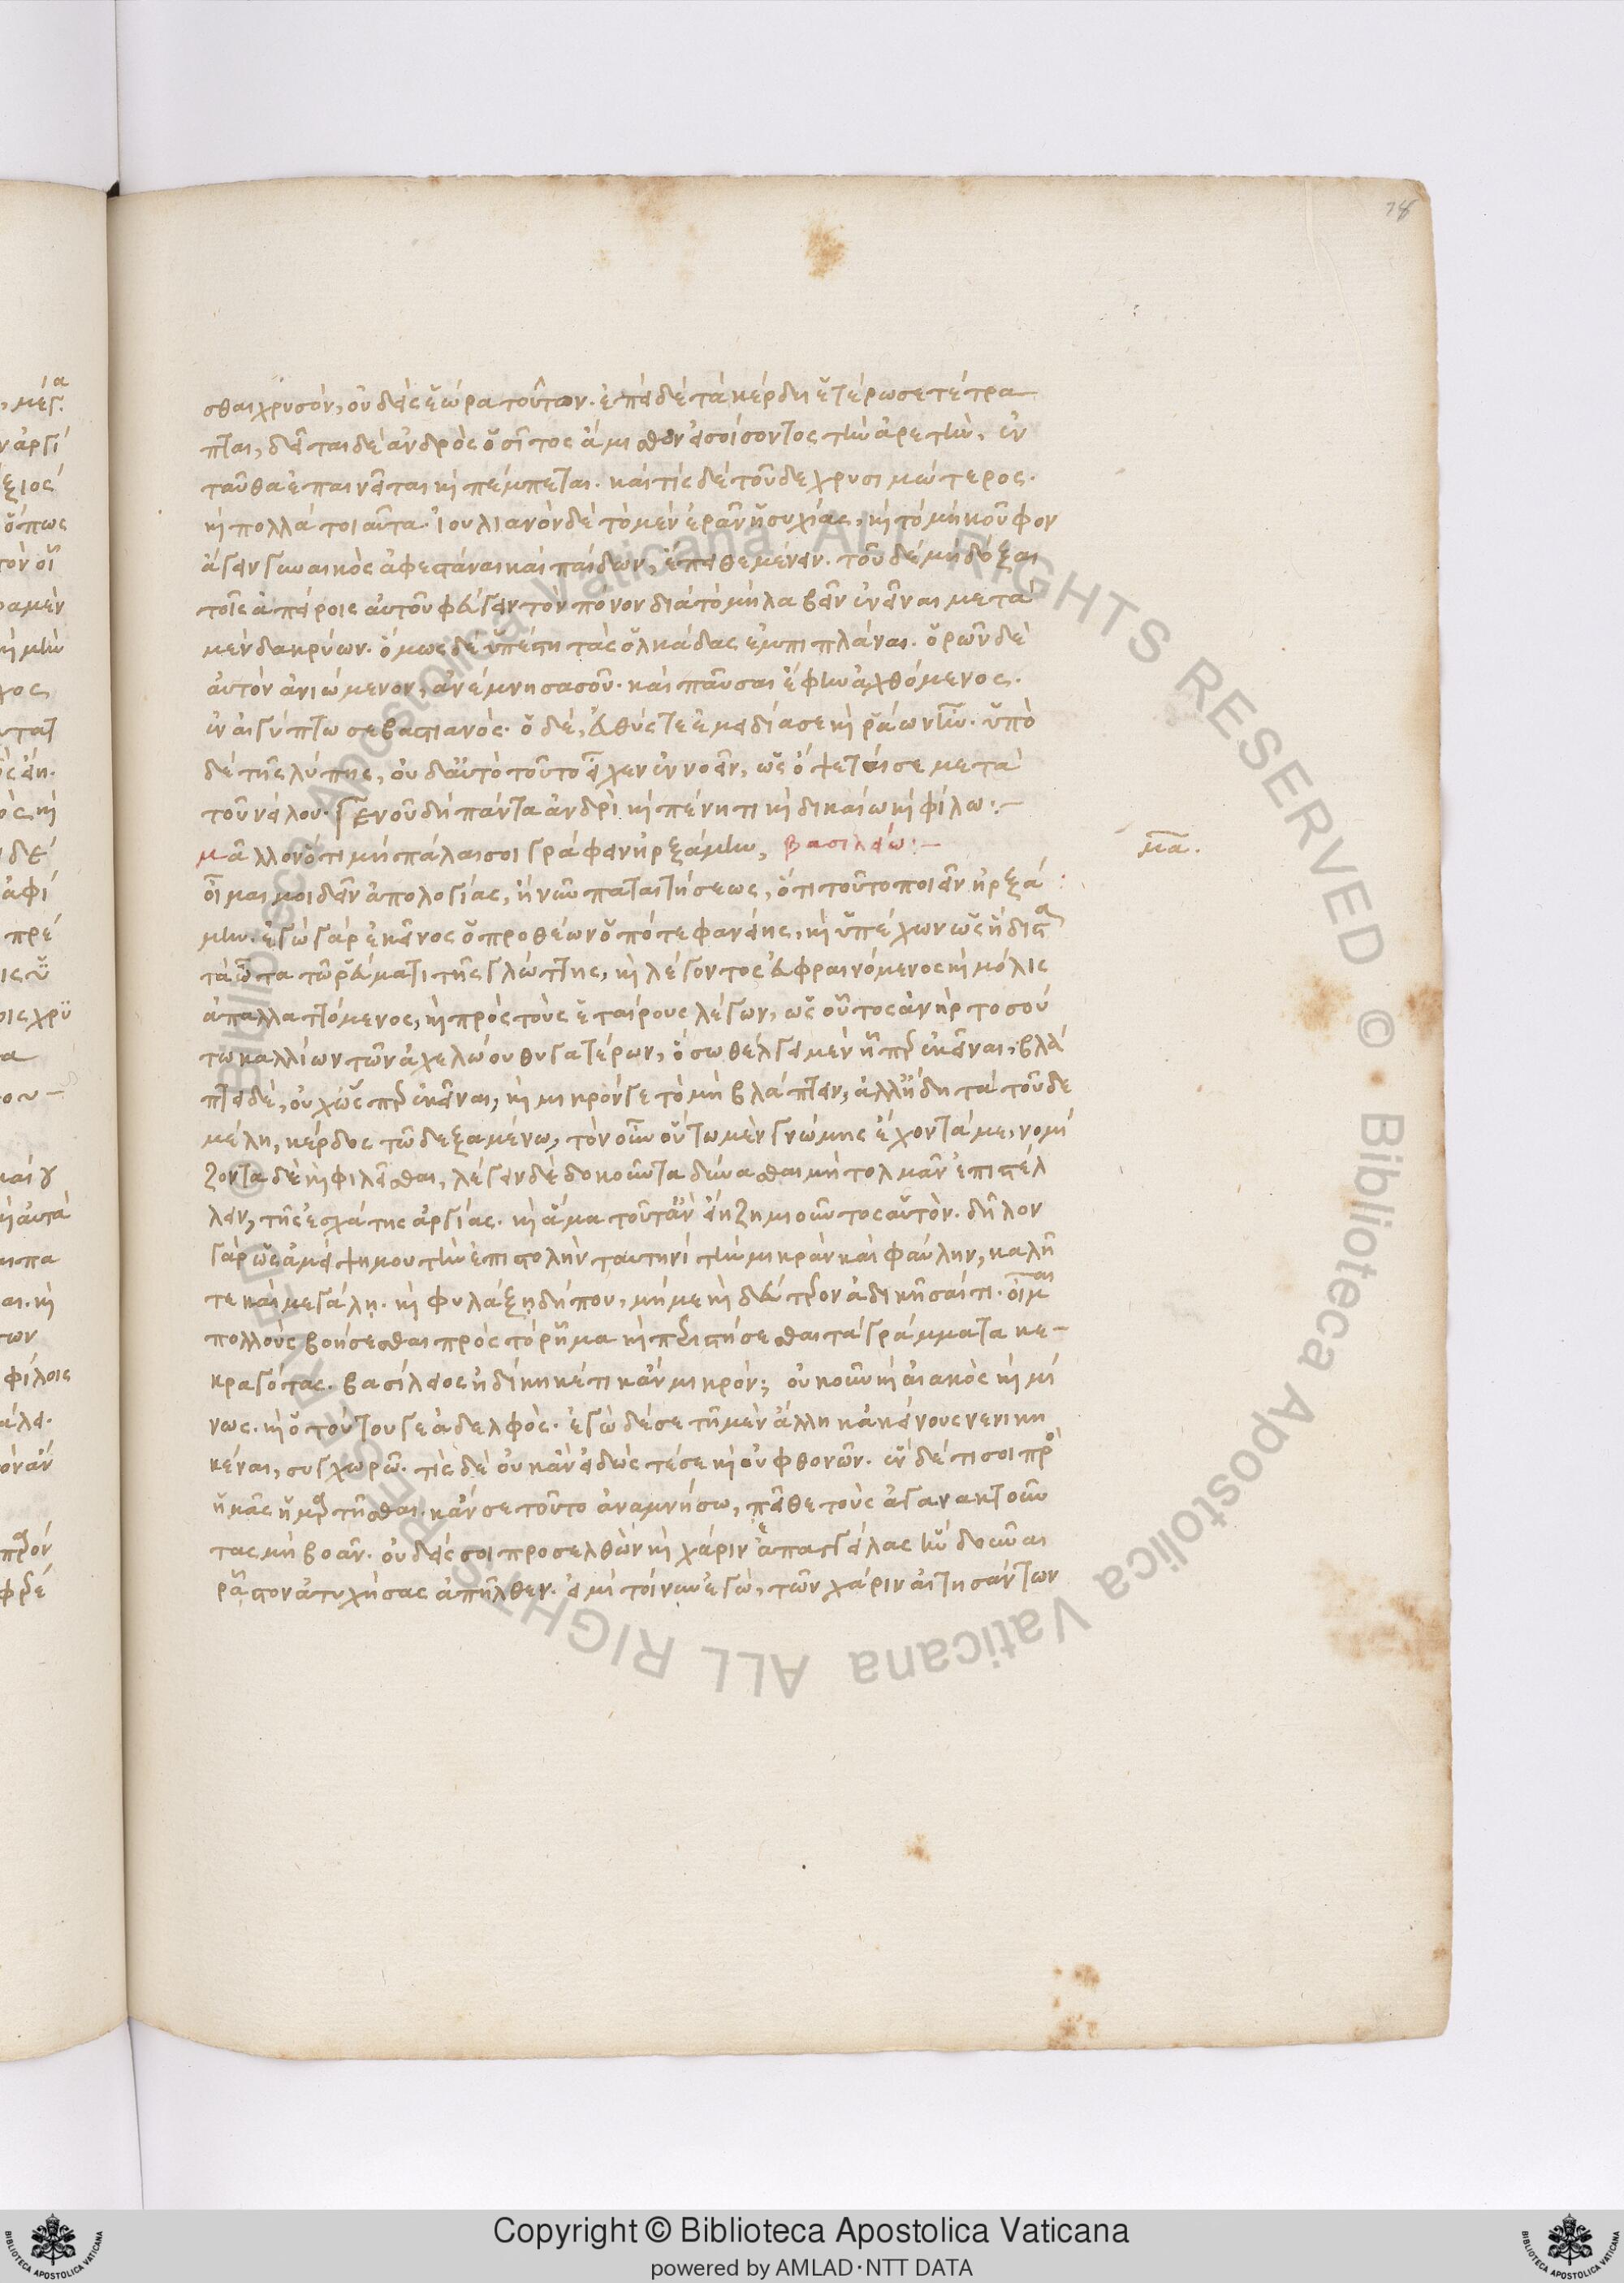 78
σθαι χρυσὸν, οὐδεὶς ἑώρα τοῦτον. ἐπεὶ δὲ τὰ κέρδη ἑτέρωσε τέτρα
πται, δεῖται δὲ ἀνδρὸς ὁ σῖτος ἄμισθον εἰσοίσοντος τὴν ἀρετὴν, ἐν
ταῦθα ἐπαινεῖται κ πέμπεται. καὶ τίς δὲ τοῦδε χρησιμώτερος.
κ πολλὰ τοιαῦτα. Ἰουλιανὸν δὲ τὸ μὲν ἐρᾶν ἡσυχίας, κ τὸ μὴ κοῦφον
ἄγειν γυναικὸς ἀφεστάναι καὶ παίδων, ἔπειθε μένειν. τοῦ δὲ μὴ δόξαι
τοῖς ἀπείροις αὐτοῦ φεύγειν τὸν πόνον διὰ τὸ μὴ λαβεῖν ἐνεῖναι μετὰ
μὲν δακρύων. ὅμως δὲ ὑπέστη τὰς ὁλκάδας ἐμπιπλάναι. ὁρῶν δὲ
αὐτὸν ἀνιώμενον, ἀνέμνησα σοῦ. καὶ παῦσαι ἔφην ἀχθόμενος.
ἐν αἰγύπτω σεβαστιανός. ὁ δὲ, εὐθύς τε ἐμειδίασε κ ῥᾴων ἦν. ὑπὸ
δὲ τῆς λύπης, οὐδ' αὐτὸ τοῦτο εἶχεν ἐννοεῖν, ὡς ὄψεταί σε μετὰ
τοῦ νείλου. γενοῦ δὴ πάντα ἀνδρὶ κ πένητι κ δικαίω κ φίλω:–
μᾶλλον ὅτι μὴ πάλαι σοι γράφειν ἠρξάμην, βασιλείω:–
μα.
οἶμαί μοι δεῖν ἀπολογίας, ἢ νῦν παραιτήσεως, ὅτι τοῦτο ποιεῖν ἠρξά
μην. ἐγὼ γὰρ ἐκεῖνος ὁ προθέων ὁπότε φανείης, κ ὑπέχων ὡς ἥδιστα
τὰ ὦτα τῶ ῥεύματι τῆς γλώττης, κ λέγοντος εὐφραινόμενος κ μόλις
ἀπαλλαττόμενος, κ πρὸς τοὺς ἑταίρους λέγων, ὡς οὗτος ἀνὴρ τοσού
τω καλλίων τῶν ἀχελώου θυγατέρων, ὅσω θέλγει μὲν ᾗπερ ἐκεῖναι, βλά
πτει δὲ, οὐχ ὥσπερ ἐκεῖναι, κ μικρόν γε τὸ μὴ βλάπτειν, ἀλλ' ἤδη τὰ τοῦδε
μέλη, κέρδος τῶ δεξαμένω, τὸν οὖν οὕτω μὲν γνώμης ἔχοντά με, νομί
ζοντα δὲ κ φιλεῖσθαι, λέγειν δὲ δοκοῦντα δύνασθαι μὴ τολμᾶν ἐπιστέλ
λειν, τῆς ἐσχάτης ἀργίας. κ ἅμα τοῦτ' ἂν εἴη ζημιοῦντος αὑτὸν. δῆλον
γὰρ ὡς ἀμείψῃ μου τὴν ἐπιστολὴν ταυτηνὶ τὴν μικρὰν καὶ φαύλην, καλῇ
τε καὶ μεγάλῃ. κ φυλάξῃ δήπου, μή με κ δεύτερον ἀδικῆσαί τι. οἶμαι
πολλοὺς βοήσεσθαι πρὸς τὸ ῥῆμα κ περιστήσεσθαι τὰ γράμματα κε–
κραγότας. βασίλειος ἠδίκηκέ τι κἂν μικρὸν; οὐκοῦν κ αἰακὸς κ μί
νως. κ ὁ τούτου γε ἀδελφός. ἐγὼ δέ σε τῇ μὲν ἄλλῃ κἀκείνους νενικη
κέναι, συγχωρῶ. τίς δὲ οὐκ ἂν εἰδώς τέ σε κ οὐ φθονῶν. ἓν δέ τί σοι πρὸς
ἡμᾶς ἡμαρτῆσθαι. κἄν σε τοῦτο ἀναμνήσω, πεῖθε τοὺς ἀγανακτοῦν
τας μὴ βοᾶν. οὐδείς σοι προσελθὼν κ χάριν ἀπαγγείλας ἣν δοῦναι
ῥᾷστον ἀτυχήσας ἀπῆλθεν. εἰμὶ τοίνυν ἐγὼ, τῶν χάριν αἰτησάντων